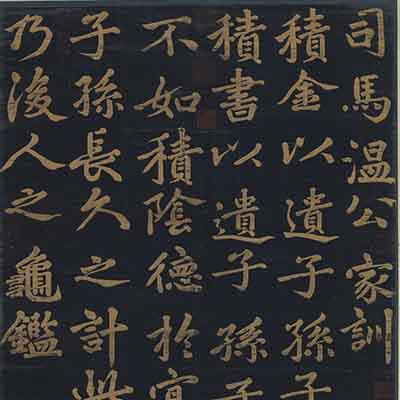 司馬温公家訓
積金以遺子孫子
積書以遺子孫子
不如積陰德於
子孫長久之計此
乃後人之龜鑑